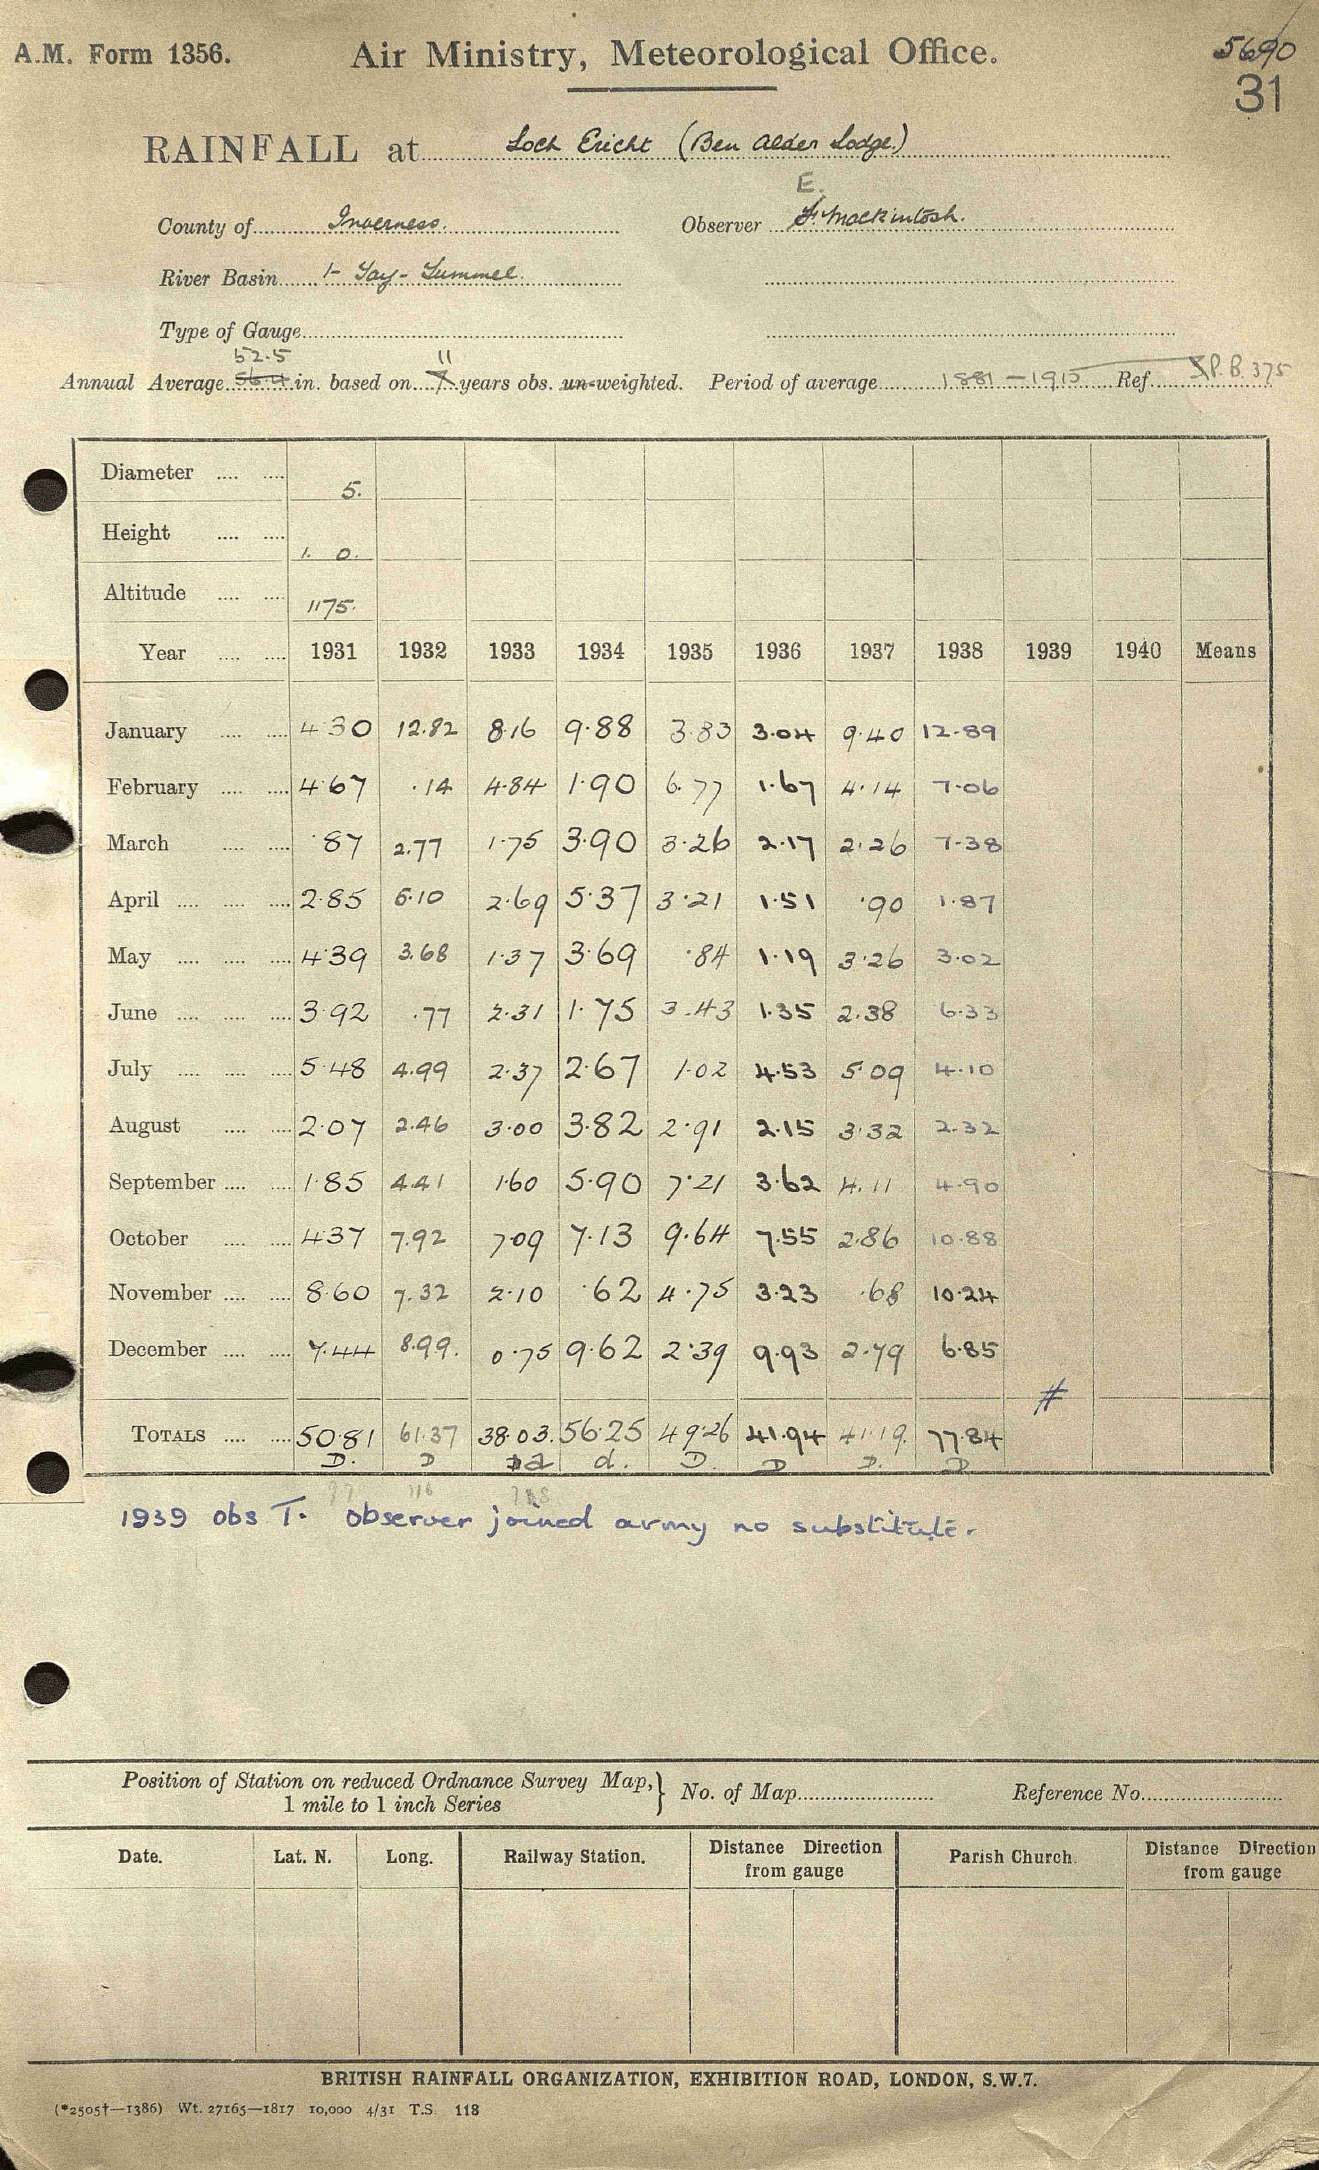 A.M. Form 1356. Air Ministry, Meteorological Office. 5690
31
RAINFALL at Loch Ericht (Ben Alder Lodge.)
E.
County of Inverness. Observer F. Mackintosh.
River Basin 1- Tay - Tummel.
Type of Gauge
52.5 11
Annual Average 56.4 in. based on 7 years obs. un-weighted. Period of average 1881-1915 Ref. P.B. 375
Diameter 5.
Height 1. 0.
Altitude 1175.
Year 1931 1932 1933 1934 1935 1936 1937 1938 1939 1940 Means
January 4.30 12.82 8.16 9.88 3.83 3.04 9.40 12.89
February 4.67 .14 4.84 1.90 6.77 1.67 4.14 7.06
March .87 2.77 1.75 3.90 3.26 2.17 2.26 7.38
April 2.85 5.10 2.69 5.37 3.21 1.51 .90 1.87
May 4.39 3.68 1.37 3.69 .84 1.19 3.26 3.02
June 3.92 .77 2.31 1.75 3.43 1.35 2.38 6.33
July 5.48 4.99 2.37 2.67 1.02 4.53 5.09 4.10
August 2.07 2.46 3.00 3.82 2.91 2.15 3.32 2.32
September 1.85 4.41 1.60 5.90 7.21 3.62 4.11 4.90
October 4.37 7.92 7.09 7.13 9.64 7.55 2.86 10.88
November 8.60 7.32 2.10 .62 4.75 3.23 .68 10.24
December 7.44 8.99. 0.75 9.62 2.39 9.93 2.79 6.85
#
TOTALS 50.81 61.37 38.03. 56.25 49.26 41.94 41.19. 77.84
D. D d d. D. D D. D
97 116
1939 obs T. observer joined army no substitute.
Position of Station on reduced Ordnance Survey Map, } No. of Map Reference No.
1 mile to 1 inch Series
Date. Lat. N. Long. Railway Station. Distance Direction from gauge Parish Church. Distance Direction from gauge
BRITISH RAINFALL ORGANIZATION, EXHIBITION ROAD, LONDON, S.W.7.
(*2505†—1386) Wt. 27165—1817 10,000 4/31 T.S. 118